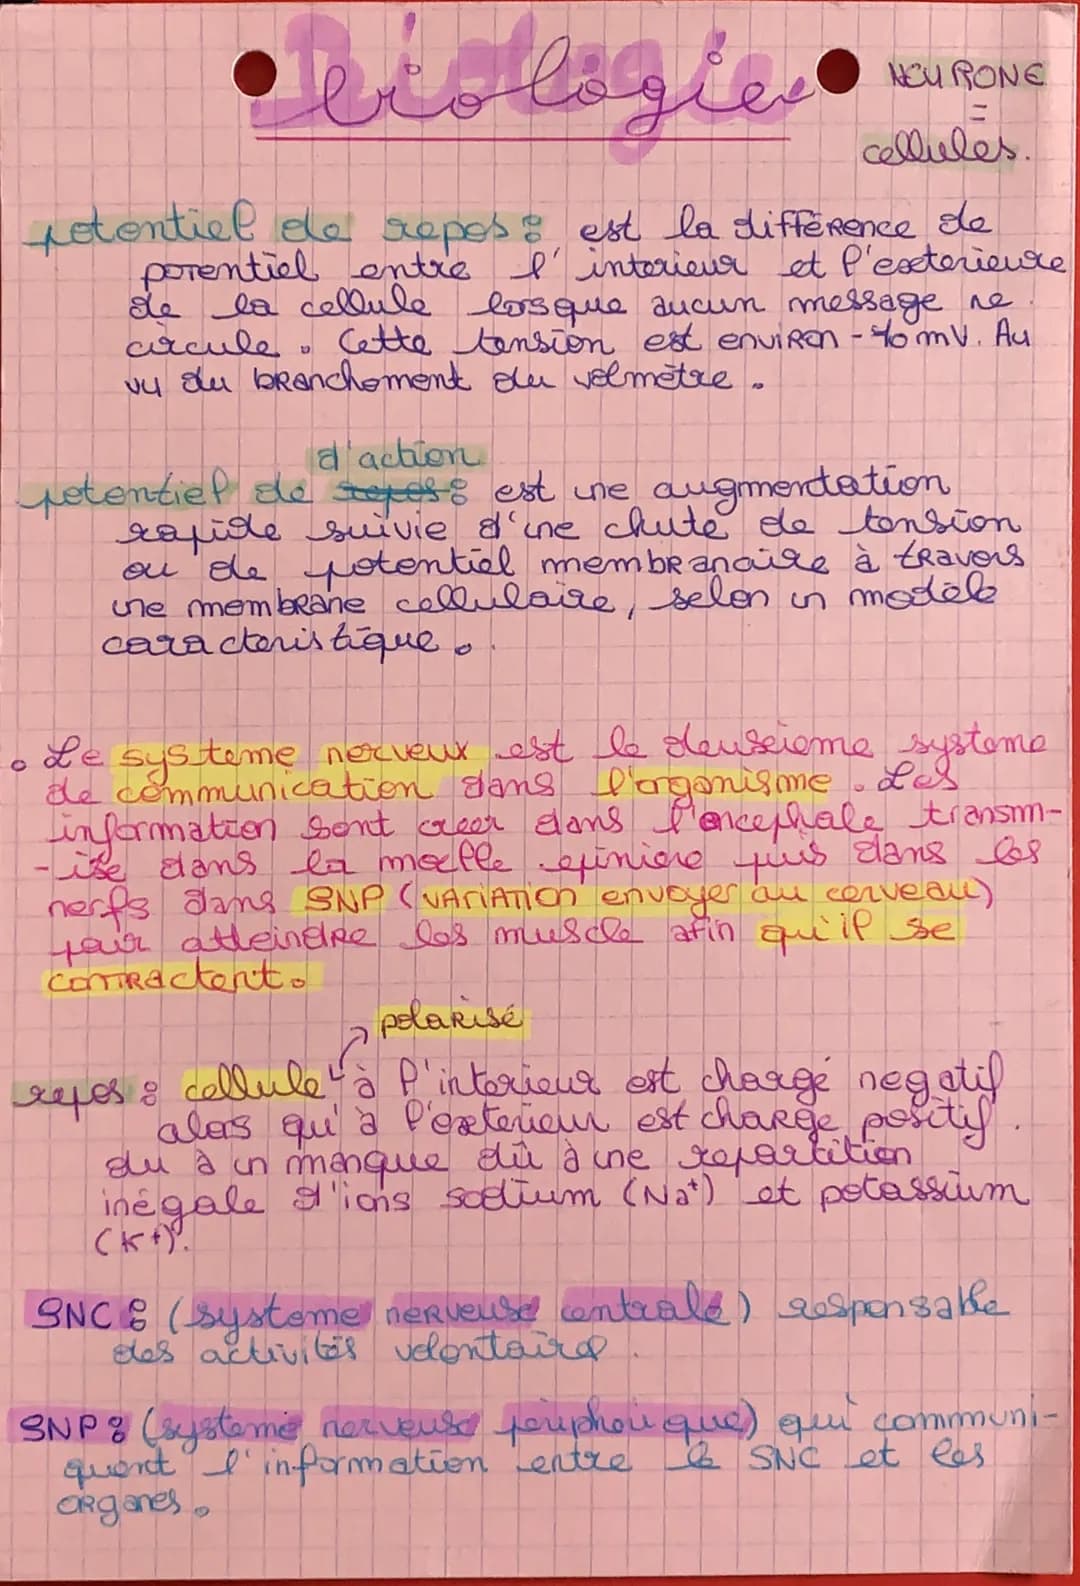 Biologie
NEURONE
=
cellules.
potentiel de repos : est la différence de
potentiel entre l'interieur et l'exterieure
de la cellule lorsque aucun message ne
circule. Cette tension est environ -70 mV. Au
vu du branchement du volmètre.
d'action
potentiel de repos : est une augmentation
rapide suivie d'une chute de tension
ou de potentiel membranaire à travers
une membrane cellulaire, selon un modèle
caracteristique.
• Le systeme nerveux est le deuxieme systeme
de communication dans l'organisme. Les
information sont creer dans l'encephale transm-
-ise dans la moelle epiniere puis dans les
nerfs dans SNP (VARIATION envoyer au cerveau)
pour atteindre les muscle afin qu'il se
contractent.
polarisé
repos : cellule à l'interieur est chargé negatif
alors qu'à l'exterieur est charge positif.
du à un manque dû à une repartition
inégale d'ions sodium (Na+) et potassium
(K+).
SNC : (systeme nerveuse centrale) responsable
des activités volontaire.
SNP : (systeme nerveuse peripherique) qui communi-
quent l'information entre le SNC et les
organes.